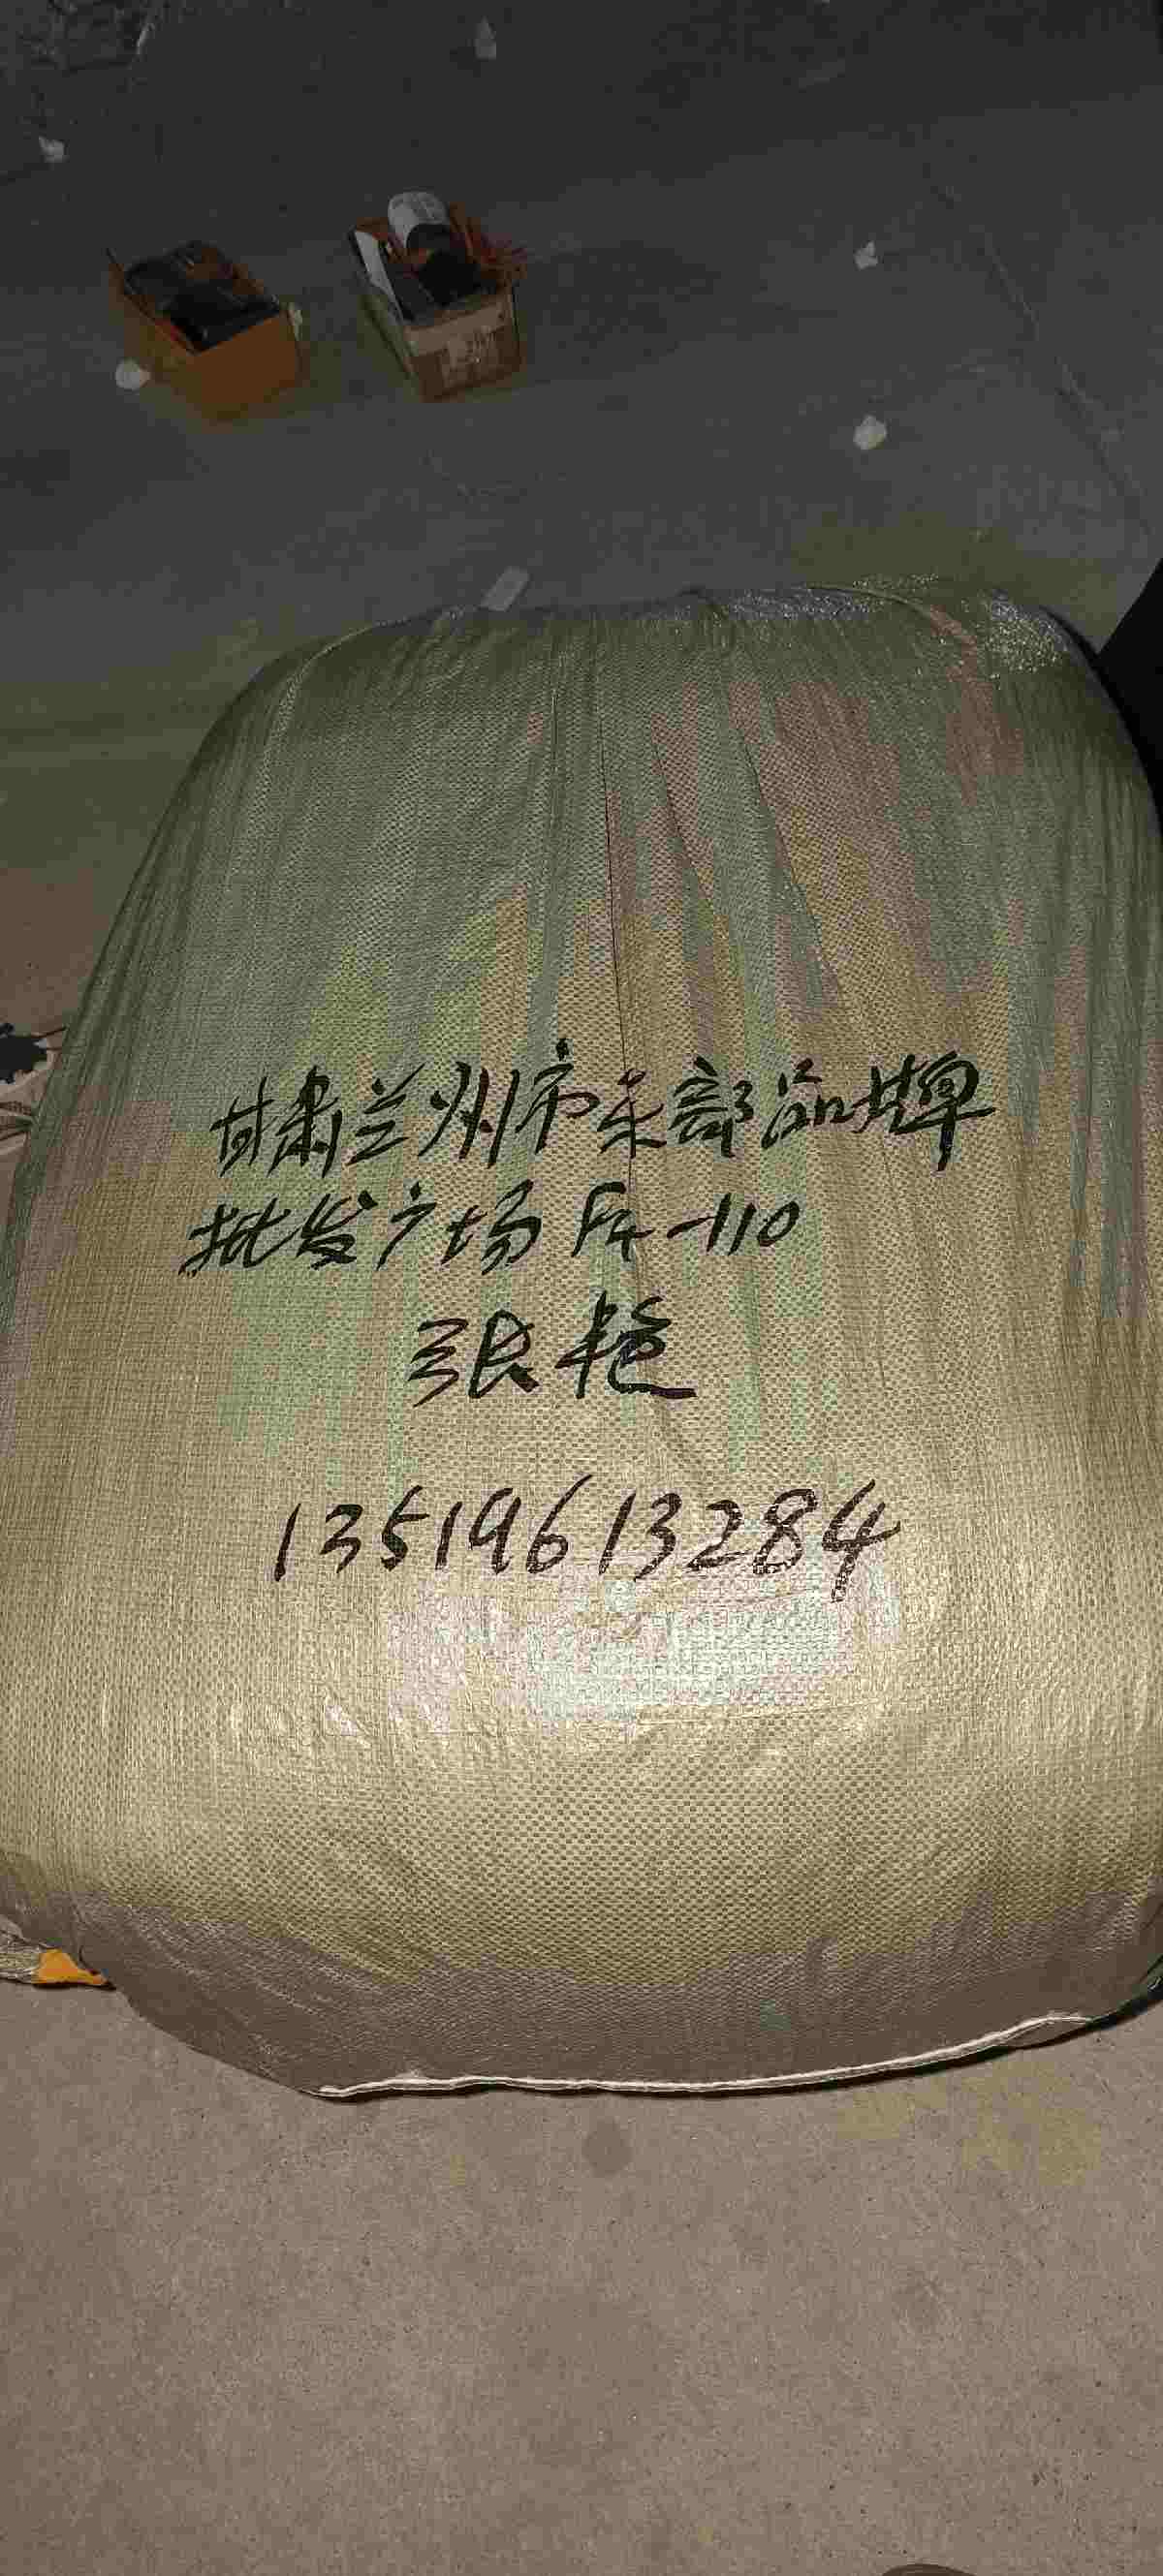 甘肃兰州市东部品牌
批发广场 F4-110
张艳
13519613284